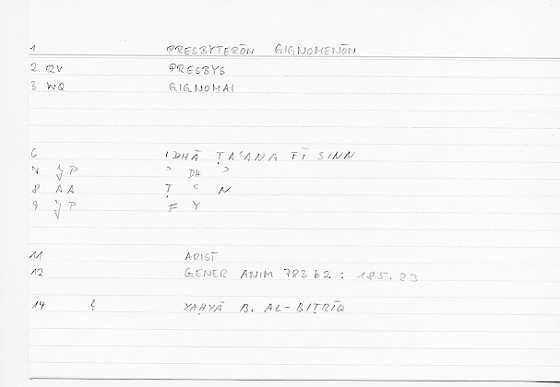 1 PRESBYTERŌN GIGNOMENŌN
2 RV PRESBYS
3 WQ GIGNOMAI
6 IDHĀ ṬAʿANA FĪ SINN
7 JP ʾ DH ʾ
8 AA Ṭ ʿ N
9 JP F Y
11 ARIST
12 GENER ANIM 783 b2 : 185.23
14 YAḤYĀ B. AL-BIṬRĪQ